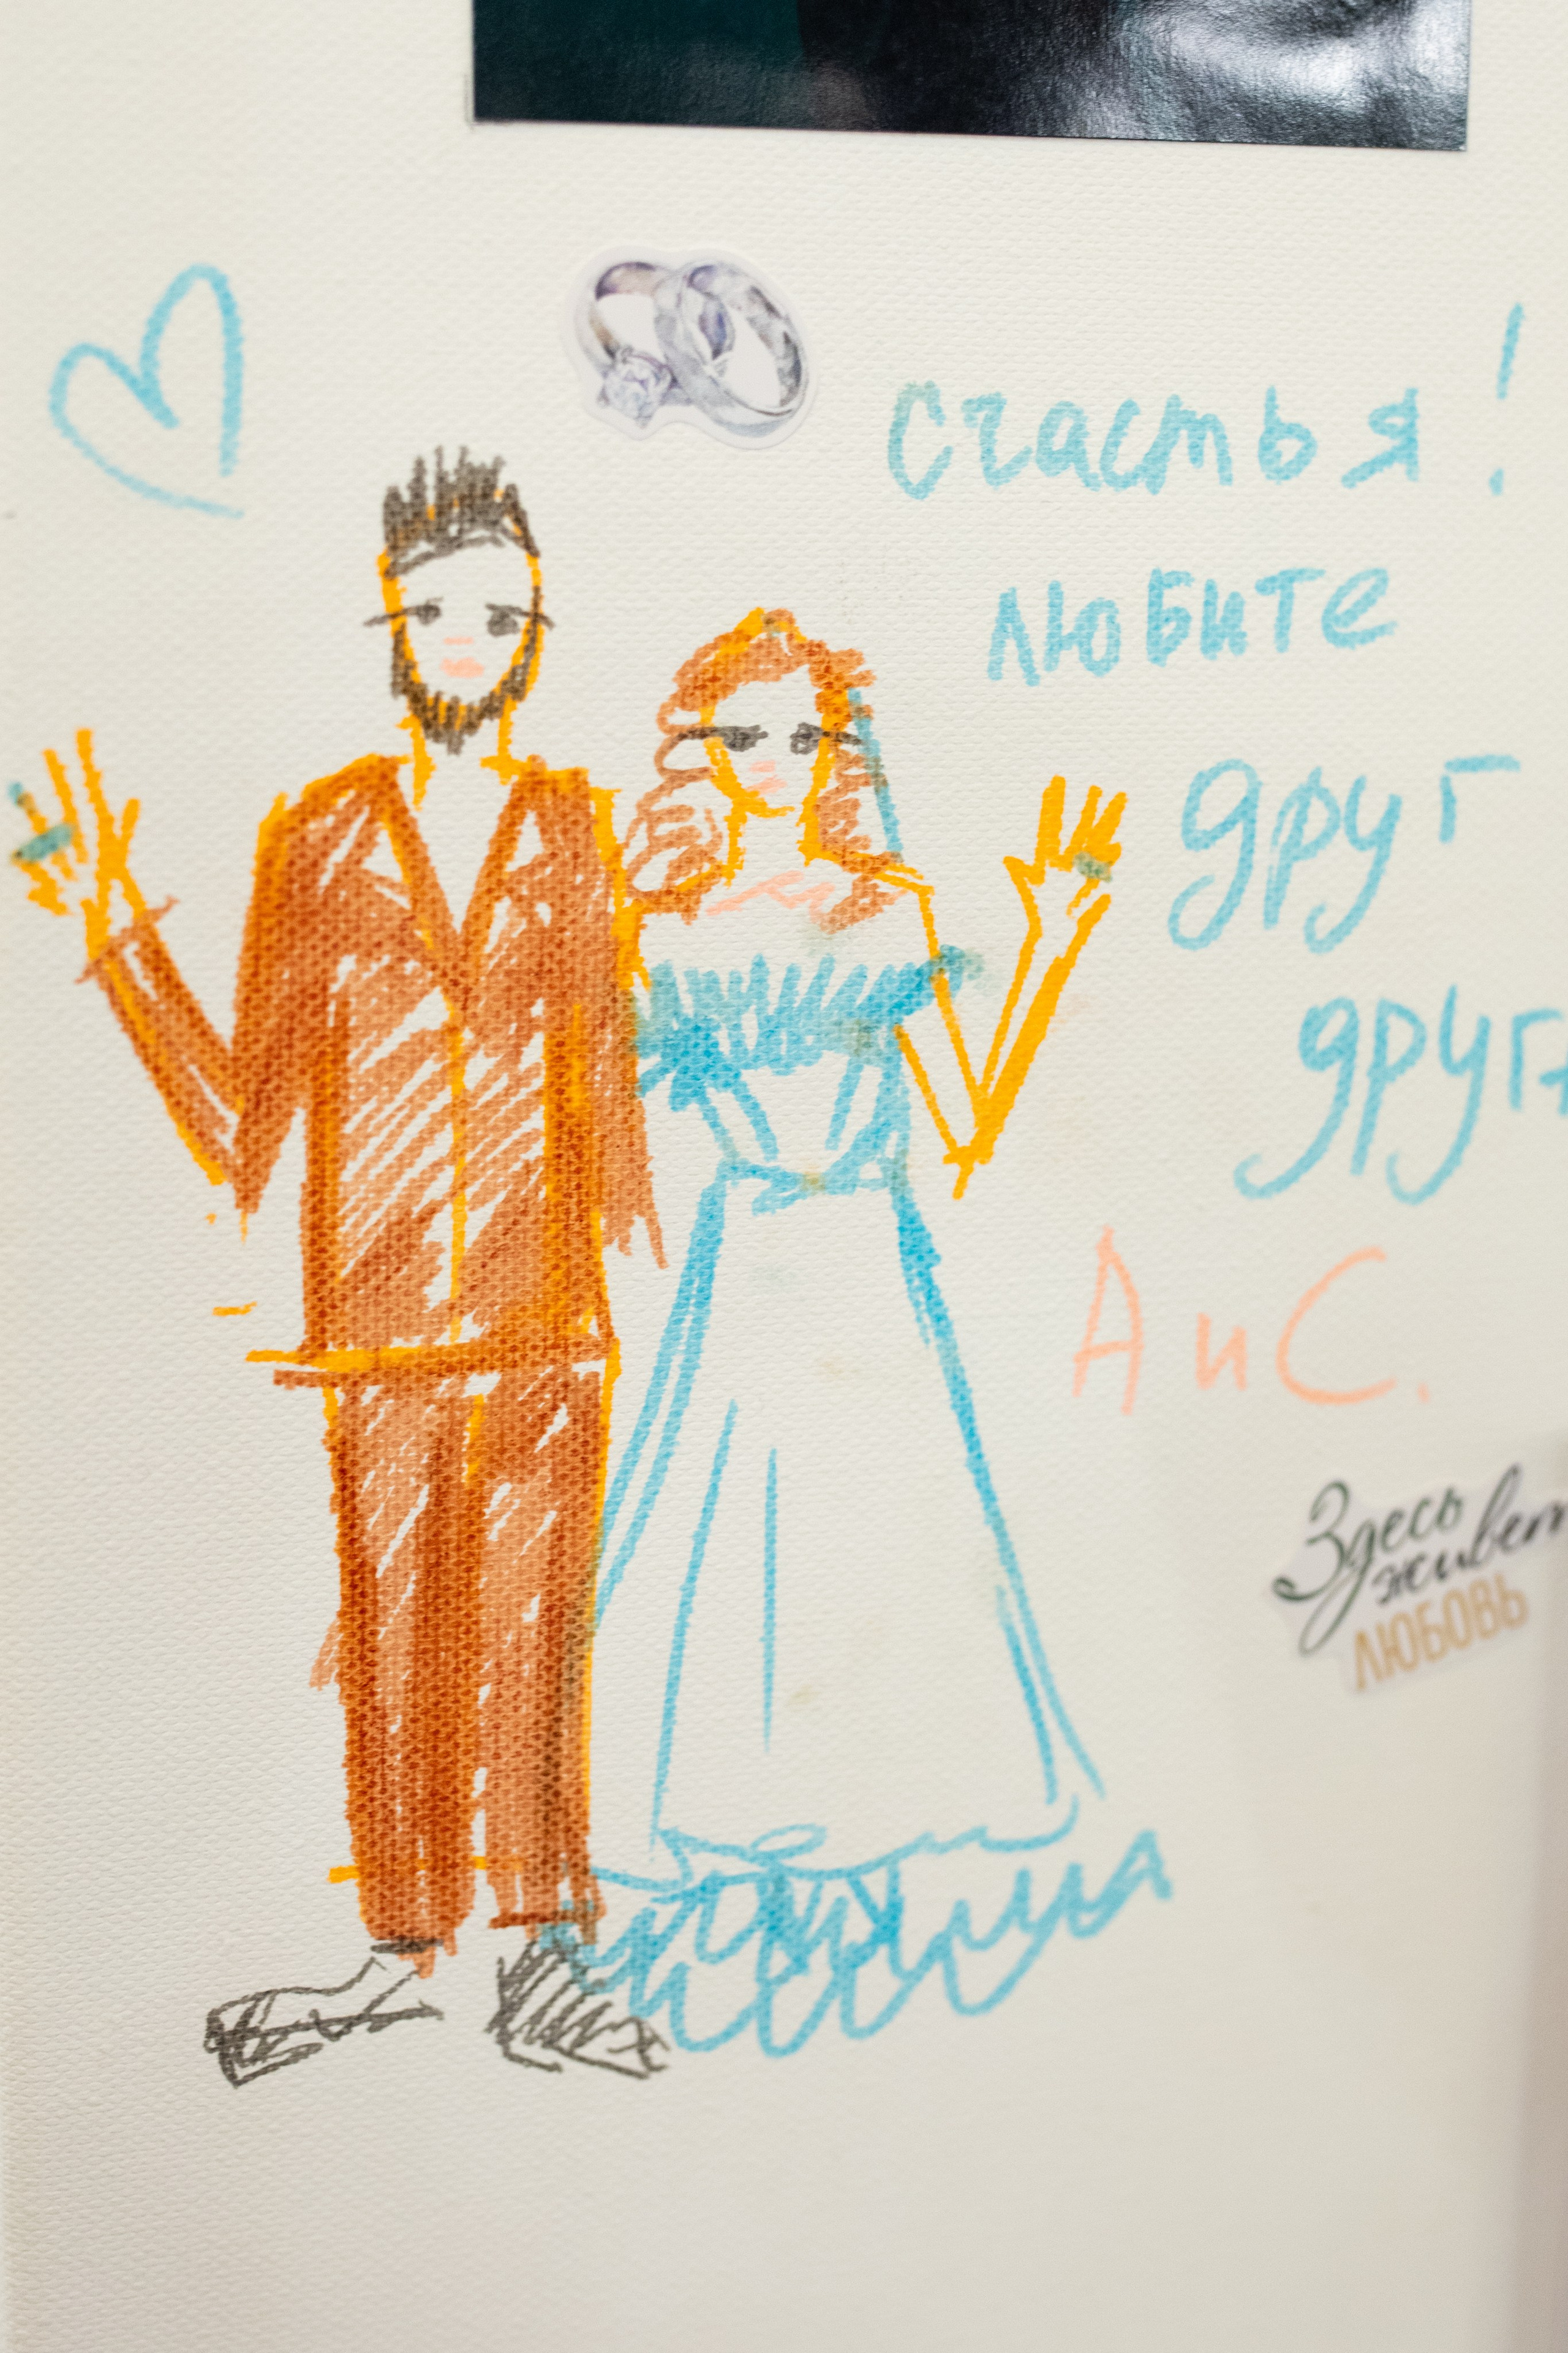 счастья!
любите
друг
друга
А и С.
Здесь
живет
ЛЮБОВЬ